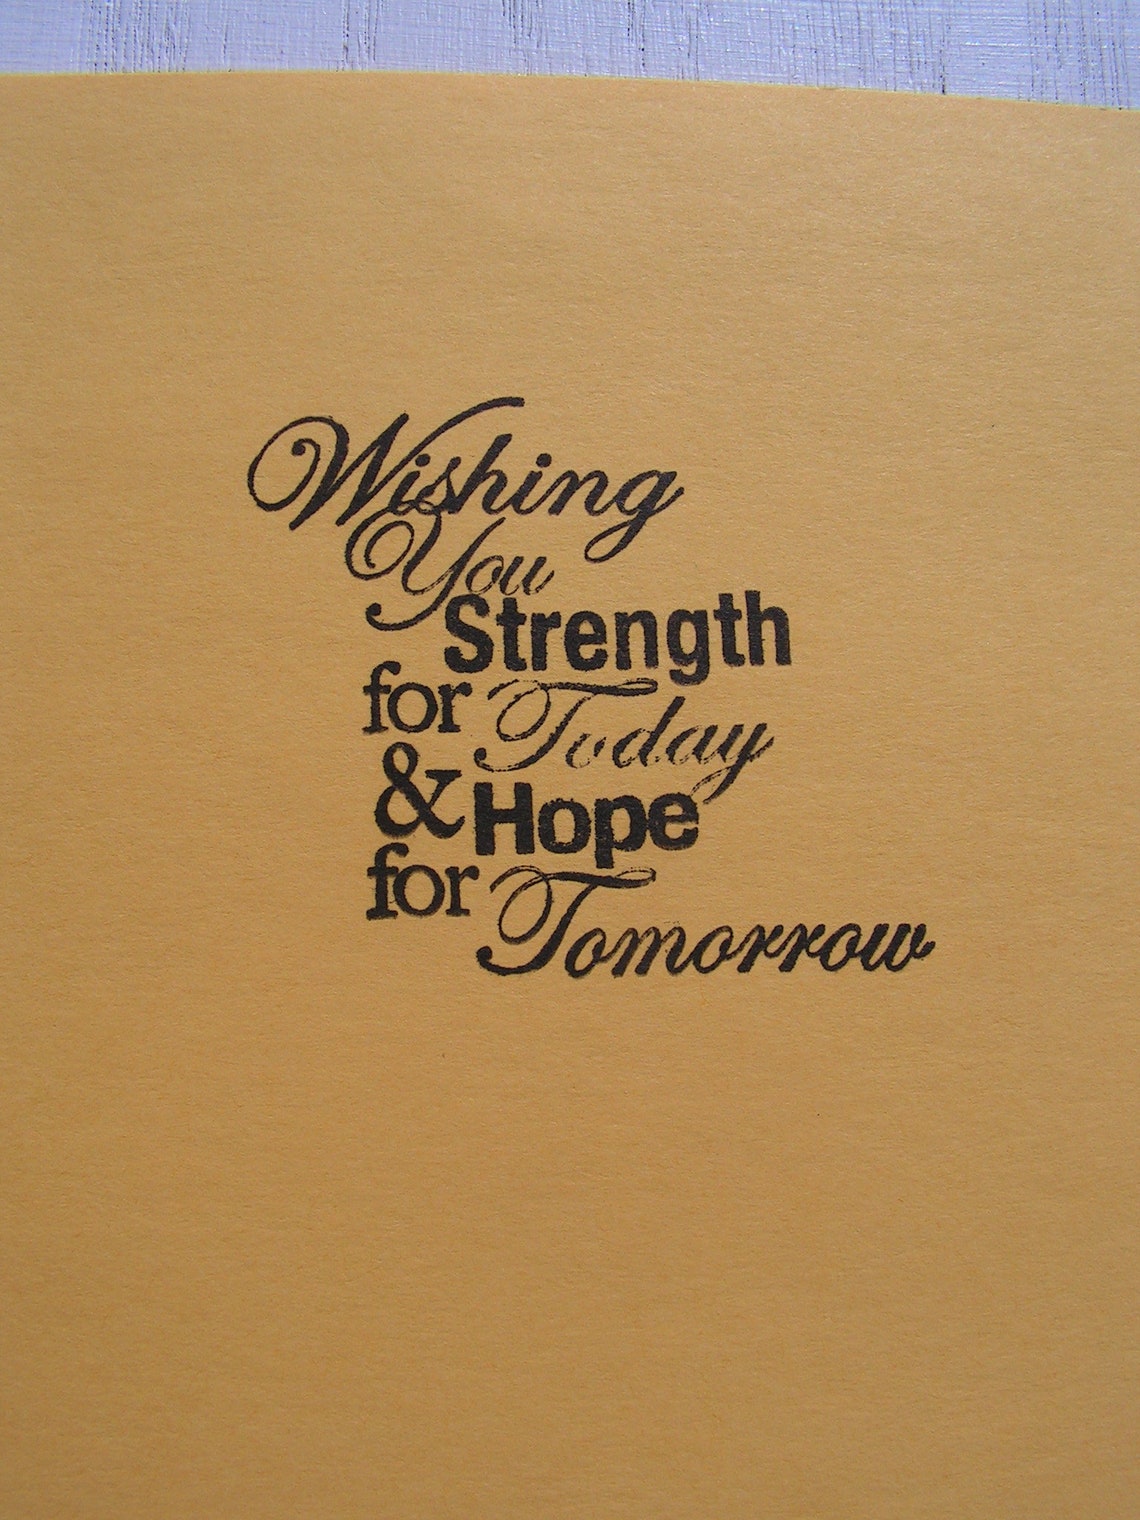 Wishing
You
Strength
for Today
& Hope
for Tomorrow